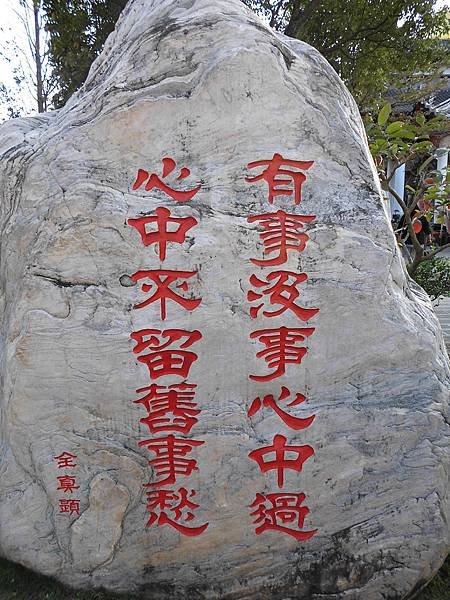 有事沒事心中過
心中不留舊事愁
全真題